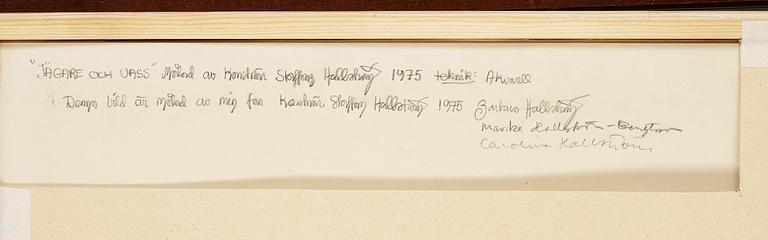 "JÄGARE OCH VASS" Målad av Konstnär Staffan Hallström 1975 teknik: Akvarell
Denna bild är målad av min far Konstnär Staffan Hallström 1975 Barbaro Hallström
Marika Hallström-Bengtson
Carolina Hallström